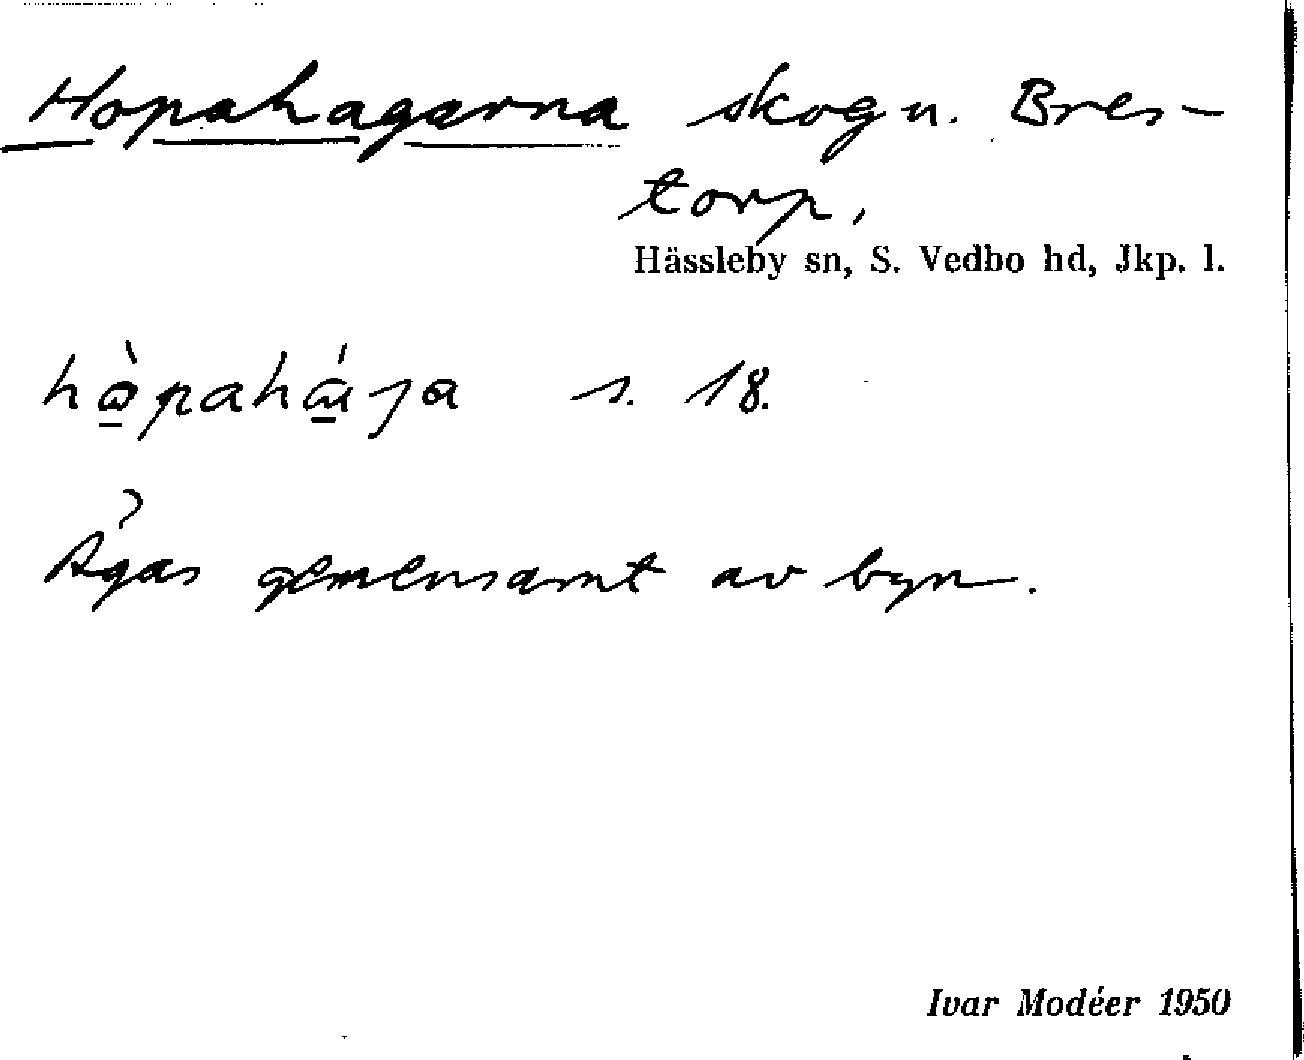 Hopahagarna skog u. Bres-
torp,
Hässleby sn, S. Vedbo hd, Jkp. l.
s. 18.
Ägas gemensamt av byn.
Ivar Modéer 1950